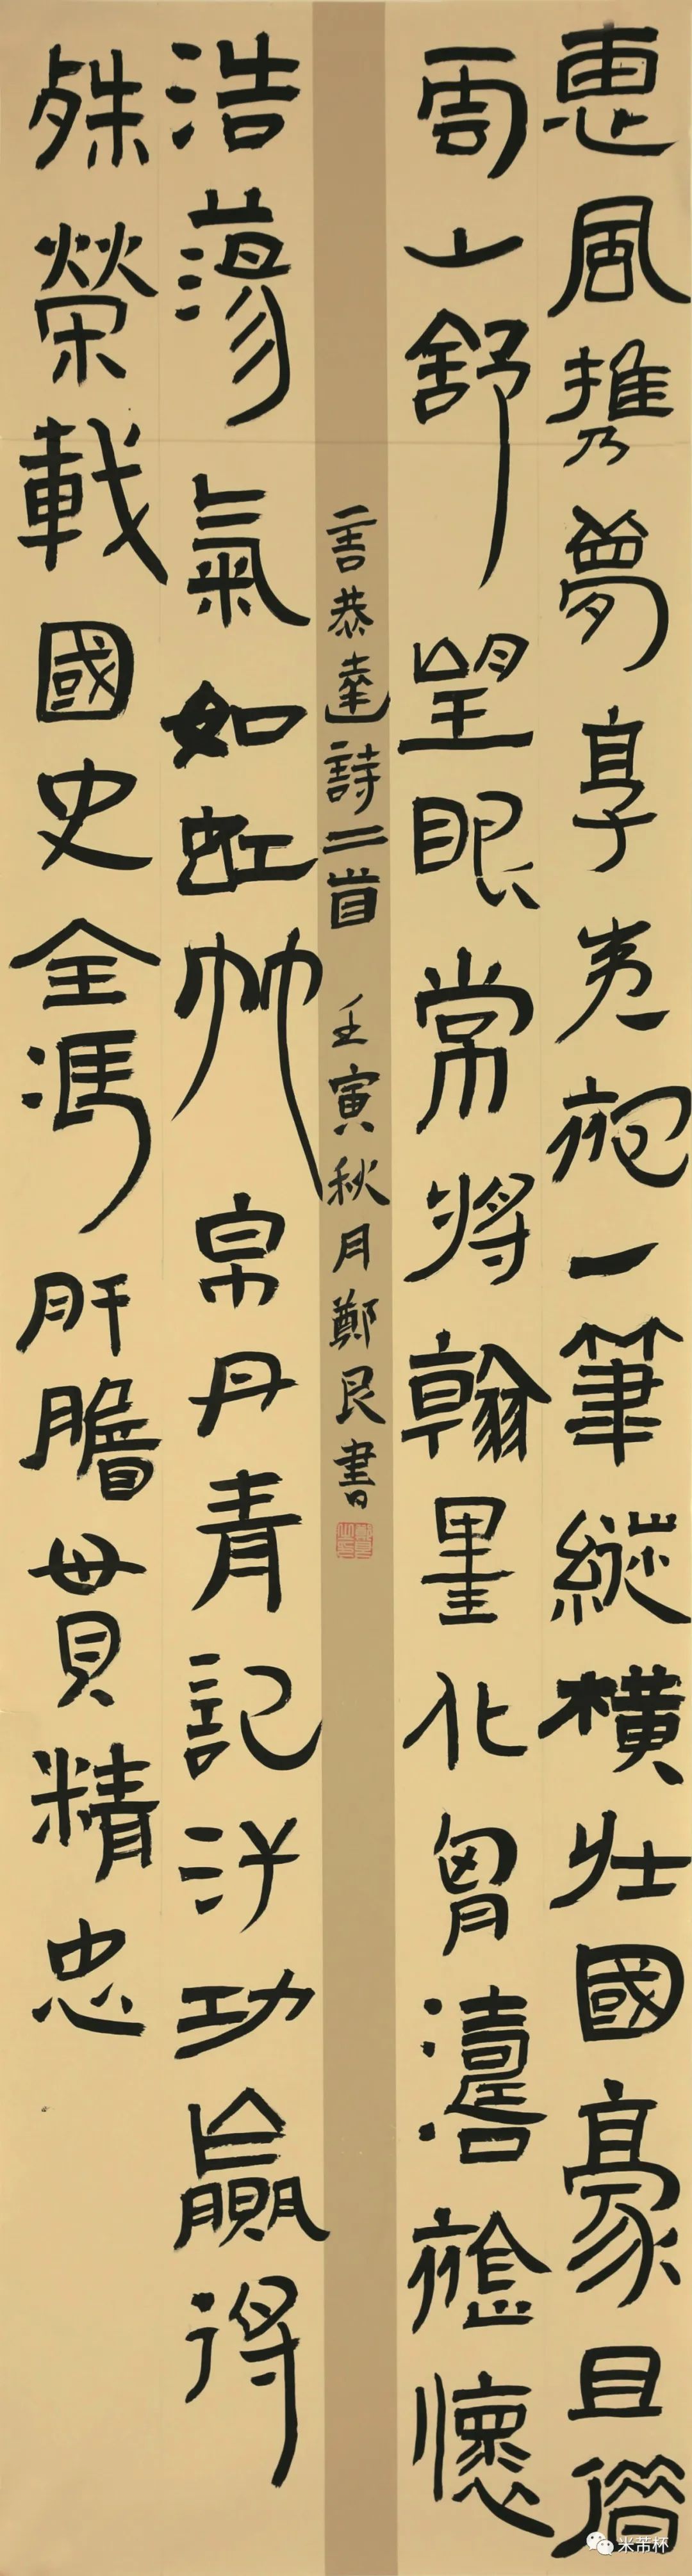 惠風携夢享一筆縱橫壯國豪且借
雲山舒望眼常將翰墨化胷濤應懷
言恭達詩二首 壬寅秋月鄭艮書
浩蕩氣如虹竹帛丹青記汗功贏得
殊榮載國史全憑肝膽貫精忠
米芾杯